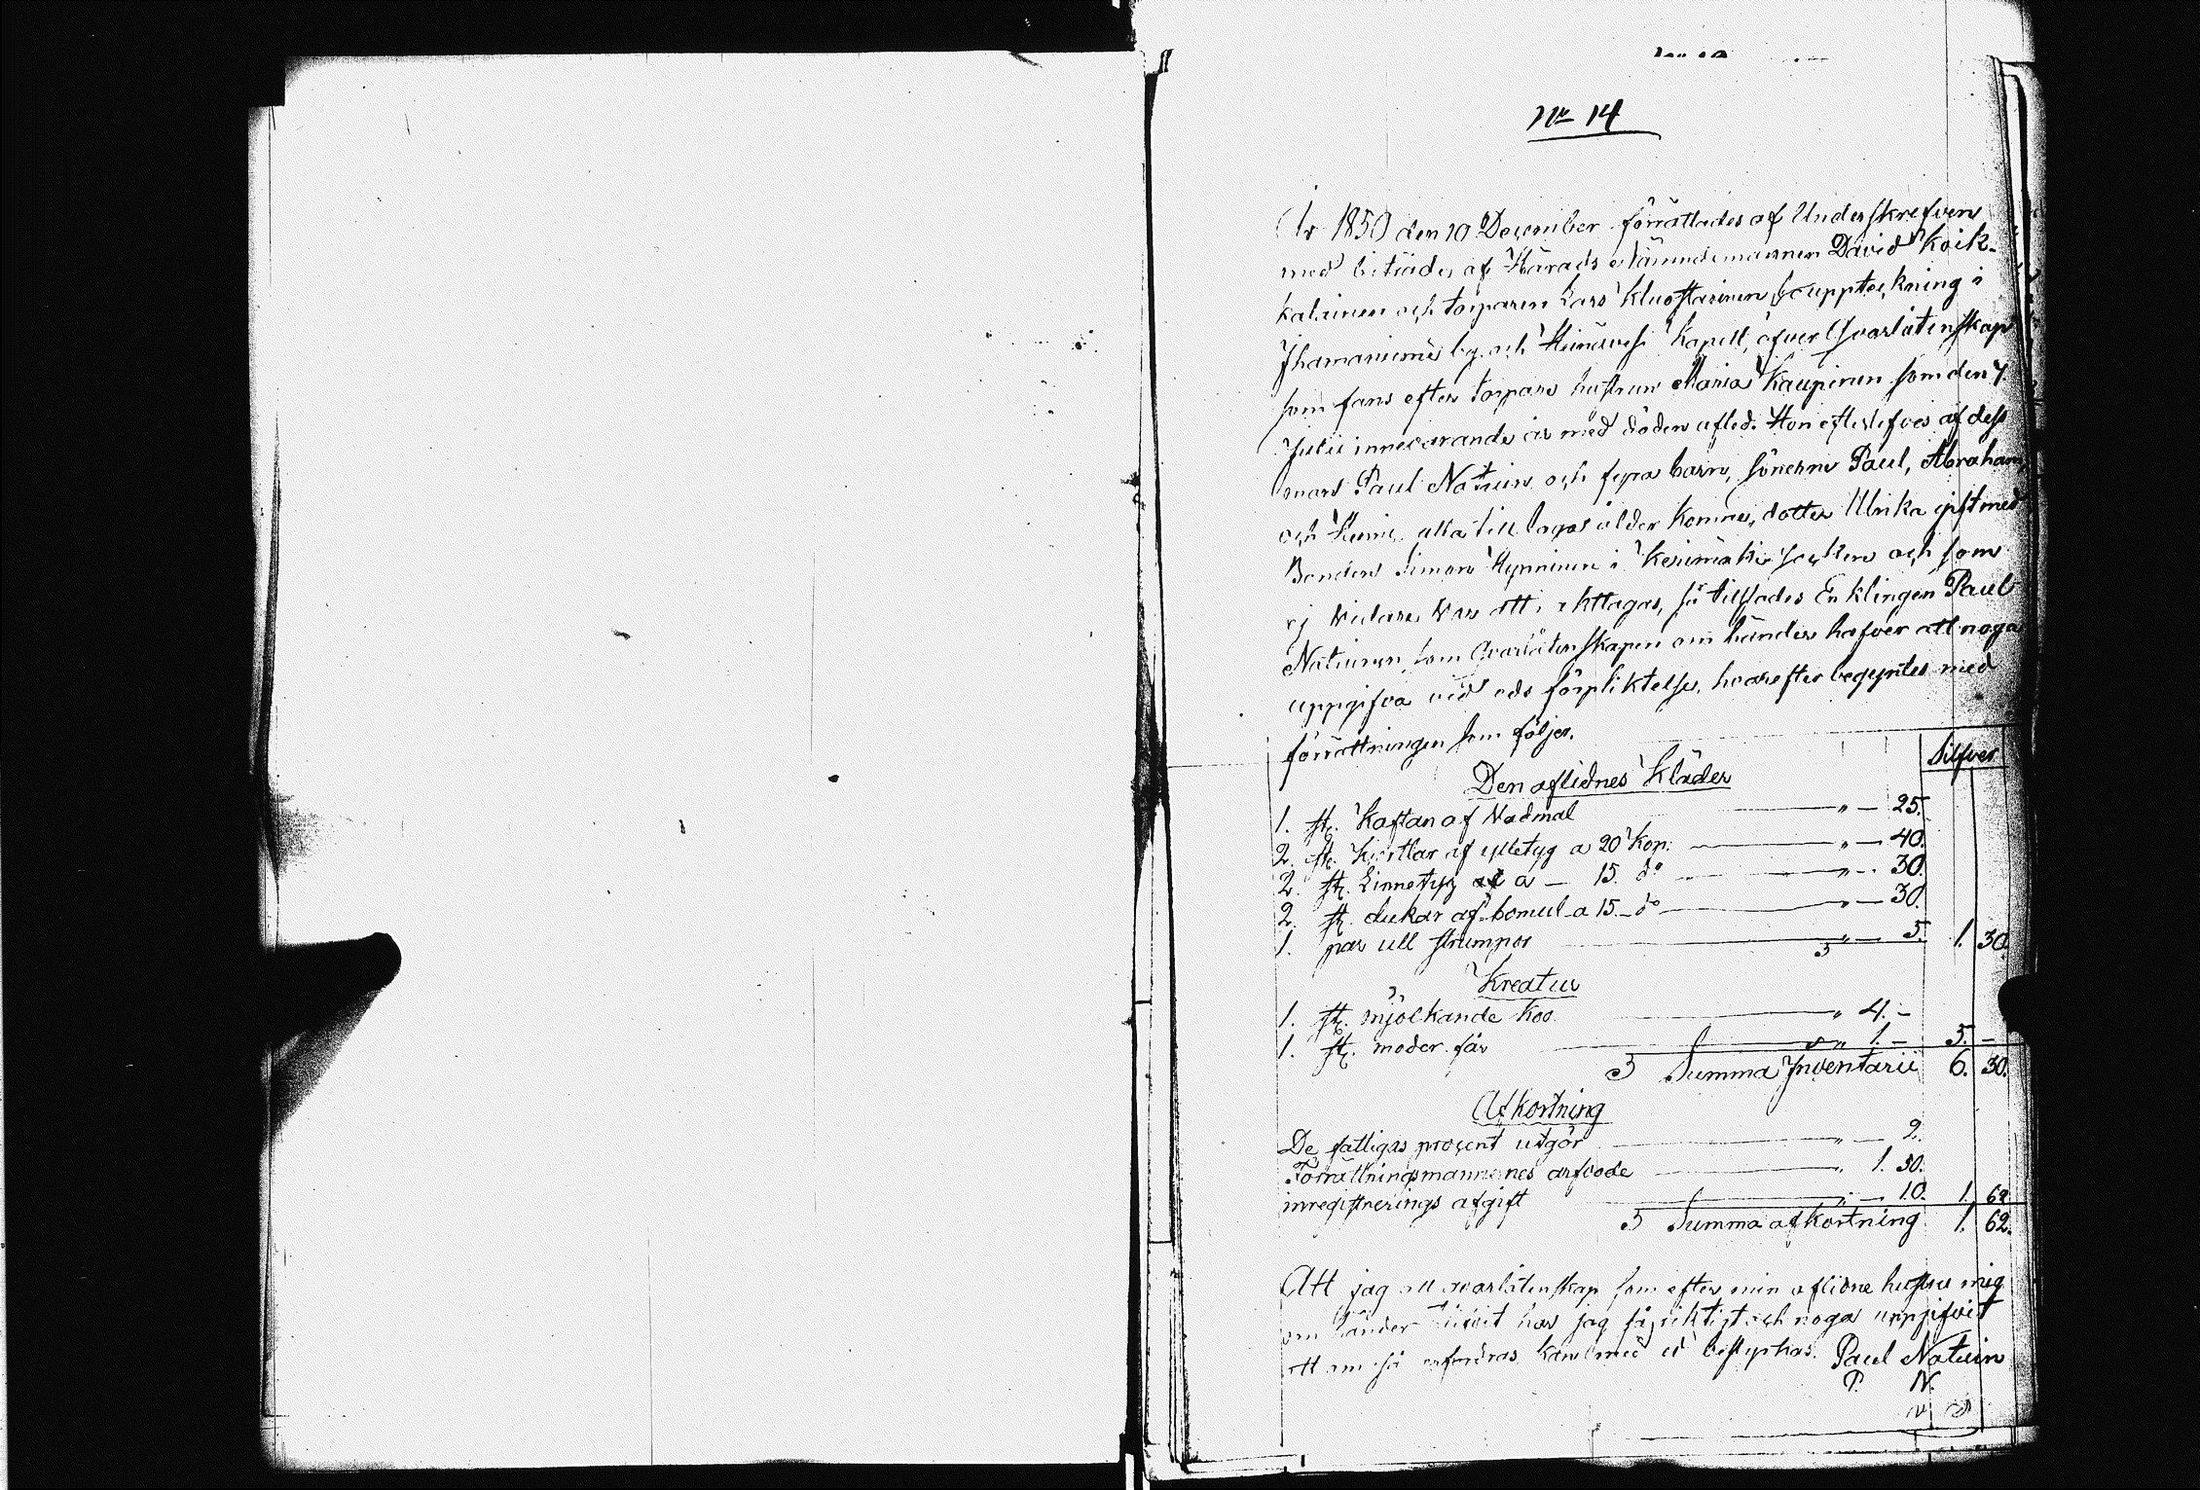 No 14
År 1850 den 10 December förrättades af Underskrefven
med biträde af Härads nämndemannen David Koik-
kalainen och torparen Lars Kluoftarinen bouppteckning i
Ihamaniemi by och Heinävesi Kapell, öfver Qvarlåtenskap
som fans efter torpare hustrun Maria Kaupinen som den 7.
Julii innevarande år med döden afled. Hon efterlefves af dess
man Paul Natuin och fyra barn, sönerne Paul, Abraham,
och alla till laga ålder komne, dotter Ulrika gift med
Bonden Simon Hynninen i Kerimäki Socken och som
ej vidare var att iakttagas, så tillsades Enklingen Paul
Natuinen som Qvarlåtenskapen om händer hafver att noga
uppgifva vid eds förpliktelse, hvarefter begyntes med
förrättningen som följer.
Silfver
Den aflidnes Kläder
1. st. Kaftan af Vadmal " — 25.
2. st. Kjortlar af ylletyg a 20 Kop. " — 40.
2. st. Linnetyg af a — 15. do " — 30.
2. st. dukar af bomul a 15. do " — 30.
1. par ull strumpor " — 5. 1. 30.
Kreatur
1. st. mjölkande Koo " 4. –
1. st. moder får " 1. – 5. –
Summa Inventarii 6. 30.
Afkortning
De fattigas procent utgör " — 2.
Förrättningsmannenes arfvode " 1. 50.
inregistrerings afgift " — 10. 1. 62.
Summa afkortning 1. 62.
Att jag all qvarlåtenskap som efter min aflidne hustru mig
om händer har jag så riktigt och noga uppgifvit
att om så erfordras kan med ed bestyrkas. Paul Natuin
P. N.